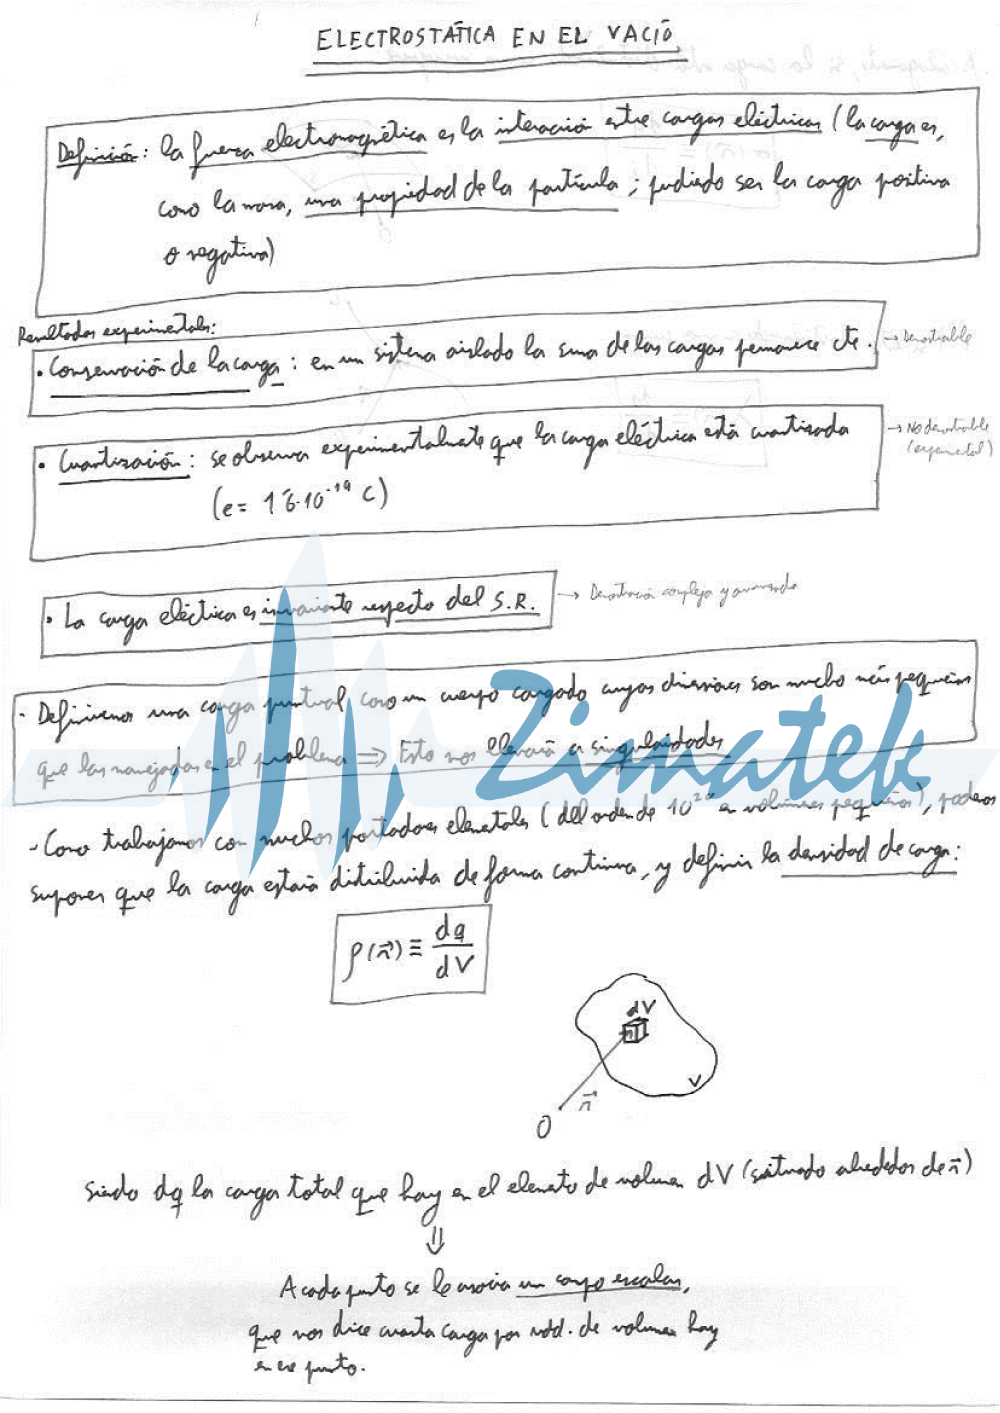 ELECTROSTÁTICA EN EL VACIÓ
Definición: la fuerza electromagnética es la interacción entre cargas eléctricas (la carga es,
como la masa, una propiedad de la partícula; pudiendo ser la carga positiva
o negativa)
Resultados experimentales:
• Conservación de la carga: en un sistema aislado la suma de las cargas permanece cte. → Demostrable
• Cuantización: se observa experimentalmente que la carga eléctrica está cuantizada → No demostrable
(e = 1'6·10⁻¹⁹ C) (experimental)
• La carga eléctrica es invariante respecto del S.R. → Demostración compleja y avanzada
- Definiremos una carga puntual como un cuerpo cargado cuyas dimensiones son mucho más pequeñas
que las manejadas en el problema ⇒ Esto nos llevará a singularidades
Zimatek
- Como trabajamos con muchos portadores elementales (del orden de 10²⁰ en volúmenes pequeños), podemos
suponer que la carga estará distribuida de forma continua, y definir la densidad de carga:
ρ(r⃗) ≡ dq/dV
dV
V
r⃗
O
siendo dq la carga total que hay en el elemento de volumen dV (situado alrededor de r⃗)
⇓
A cada punto se le asocia un campo escalar,
que nos dice cuanta carga por udd. de volumen hay
en ese punto.